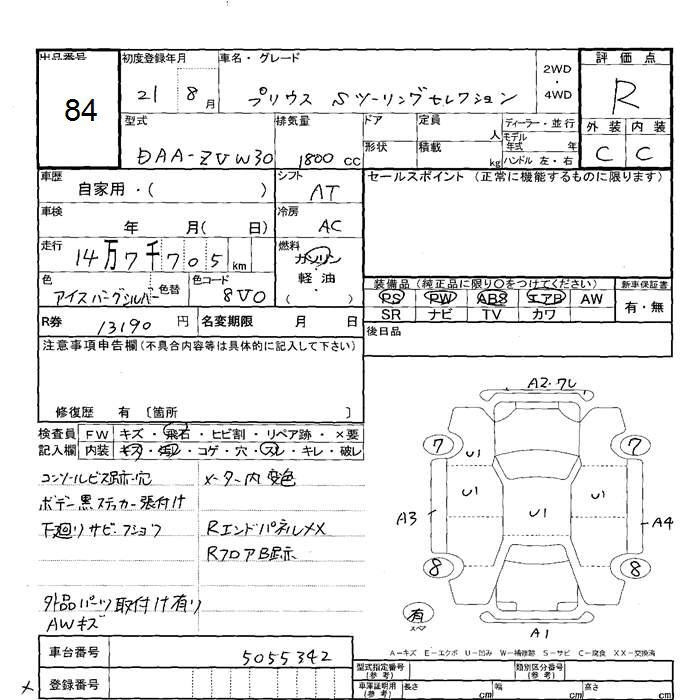 出品番号
84
初度登録年月
21 8月
車名・グレード
プリウス Sツーリングセレクション
2WD
・
4WD
評価点
R
外装 内装
C C
型式
DAA-ZVW30
排気量
1800 cc
ドア
定員 人
形状
積載 kg
ディーラー・並行
モデル
年式 年
ハンドル 左・右
車歴
自家用・( )
シフト
AT
セールスポイント (正常に機能するものに限ります)
車検
年 月( 日)
冷房
AC
走行
14万7千705 km
燃料
ガソリン
・
軽・油
( )
色
アイスバーグシルバー
色替
色コード
8V0
装備品 (純正品に限り○をつけてください)
新車保証書
PS PW ABS エアB AW
有・無
SR ナビ TV カワ
R券 13190 円
名変期限 月 日
後日品
注意事項申告欄 (不具合内容等は具体的に記入して下さい)
修復歴 有 〔箇所 〕
検査員
記入欄
FW キズ・飛石・ヒビ割・リペア跡・×要
内装 キズ・汚レ・コゲ・穴・スレ・キレ・破レ
コンソールビス跡・穴
メーター内変色
ボデー黒ステッカー張付け
下廻りサビ・フショク
RエンドパネルメX
RフロアB跡
外品パーツ取付け有り
AWキズ
A2・ワレ
7 7
U1
U1 U1 U1
A3 A4
8 8
有
スペア
A1
A-キズ E-エクボ U-凹み W-補修跡 S-サビ C-腐食 XX-交換済
車台番号 5055342
登録番号
型式指定番号
(参考)
類別区分番号
(参考)
車庫証明用
(参考)
長さ cm
幅 cm
高さ cm